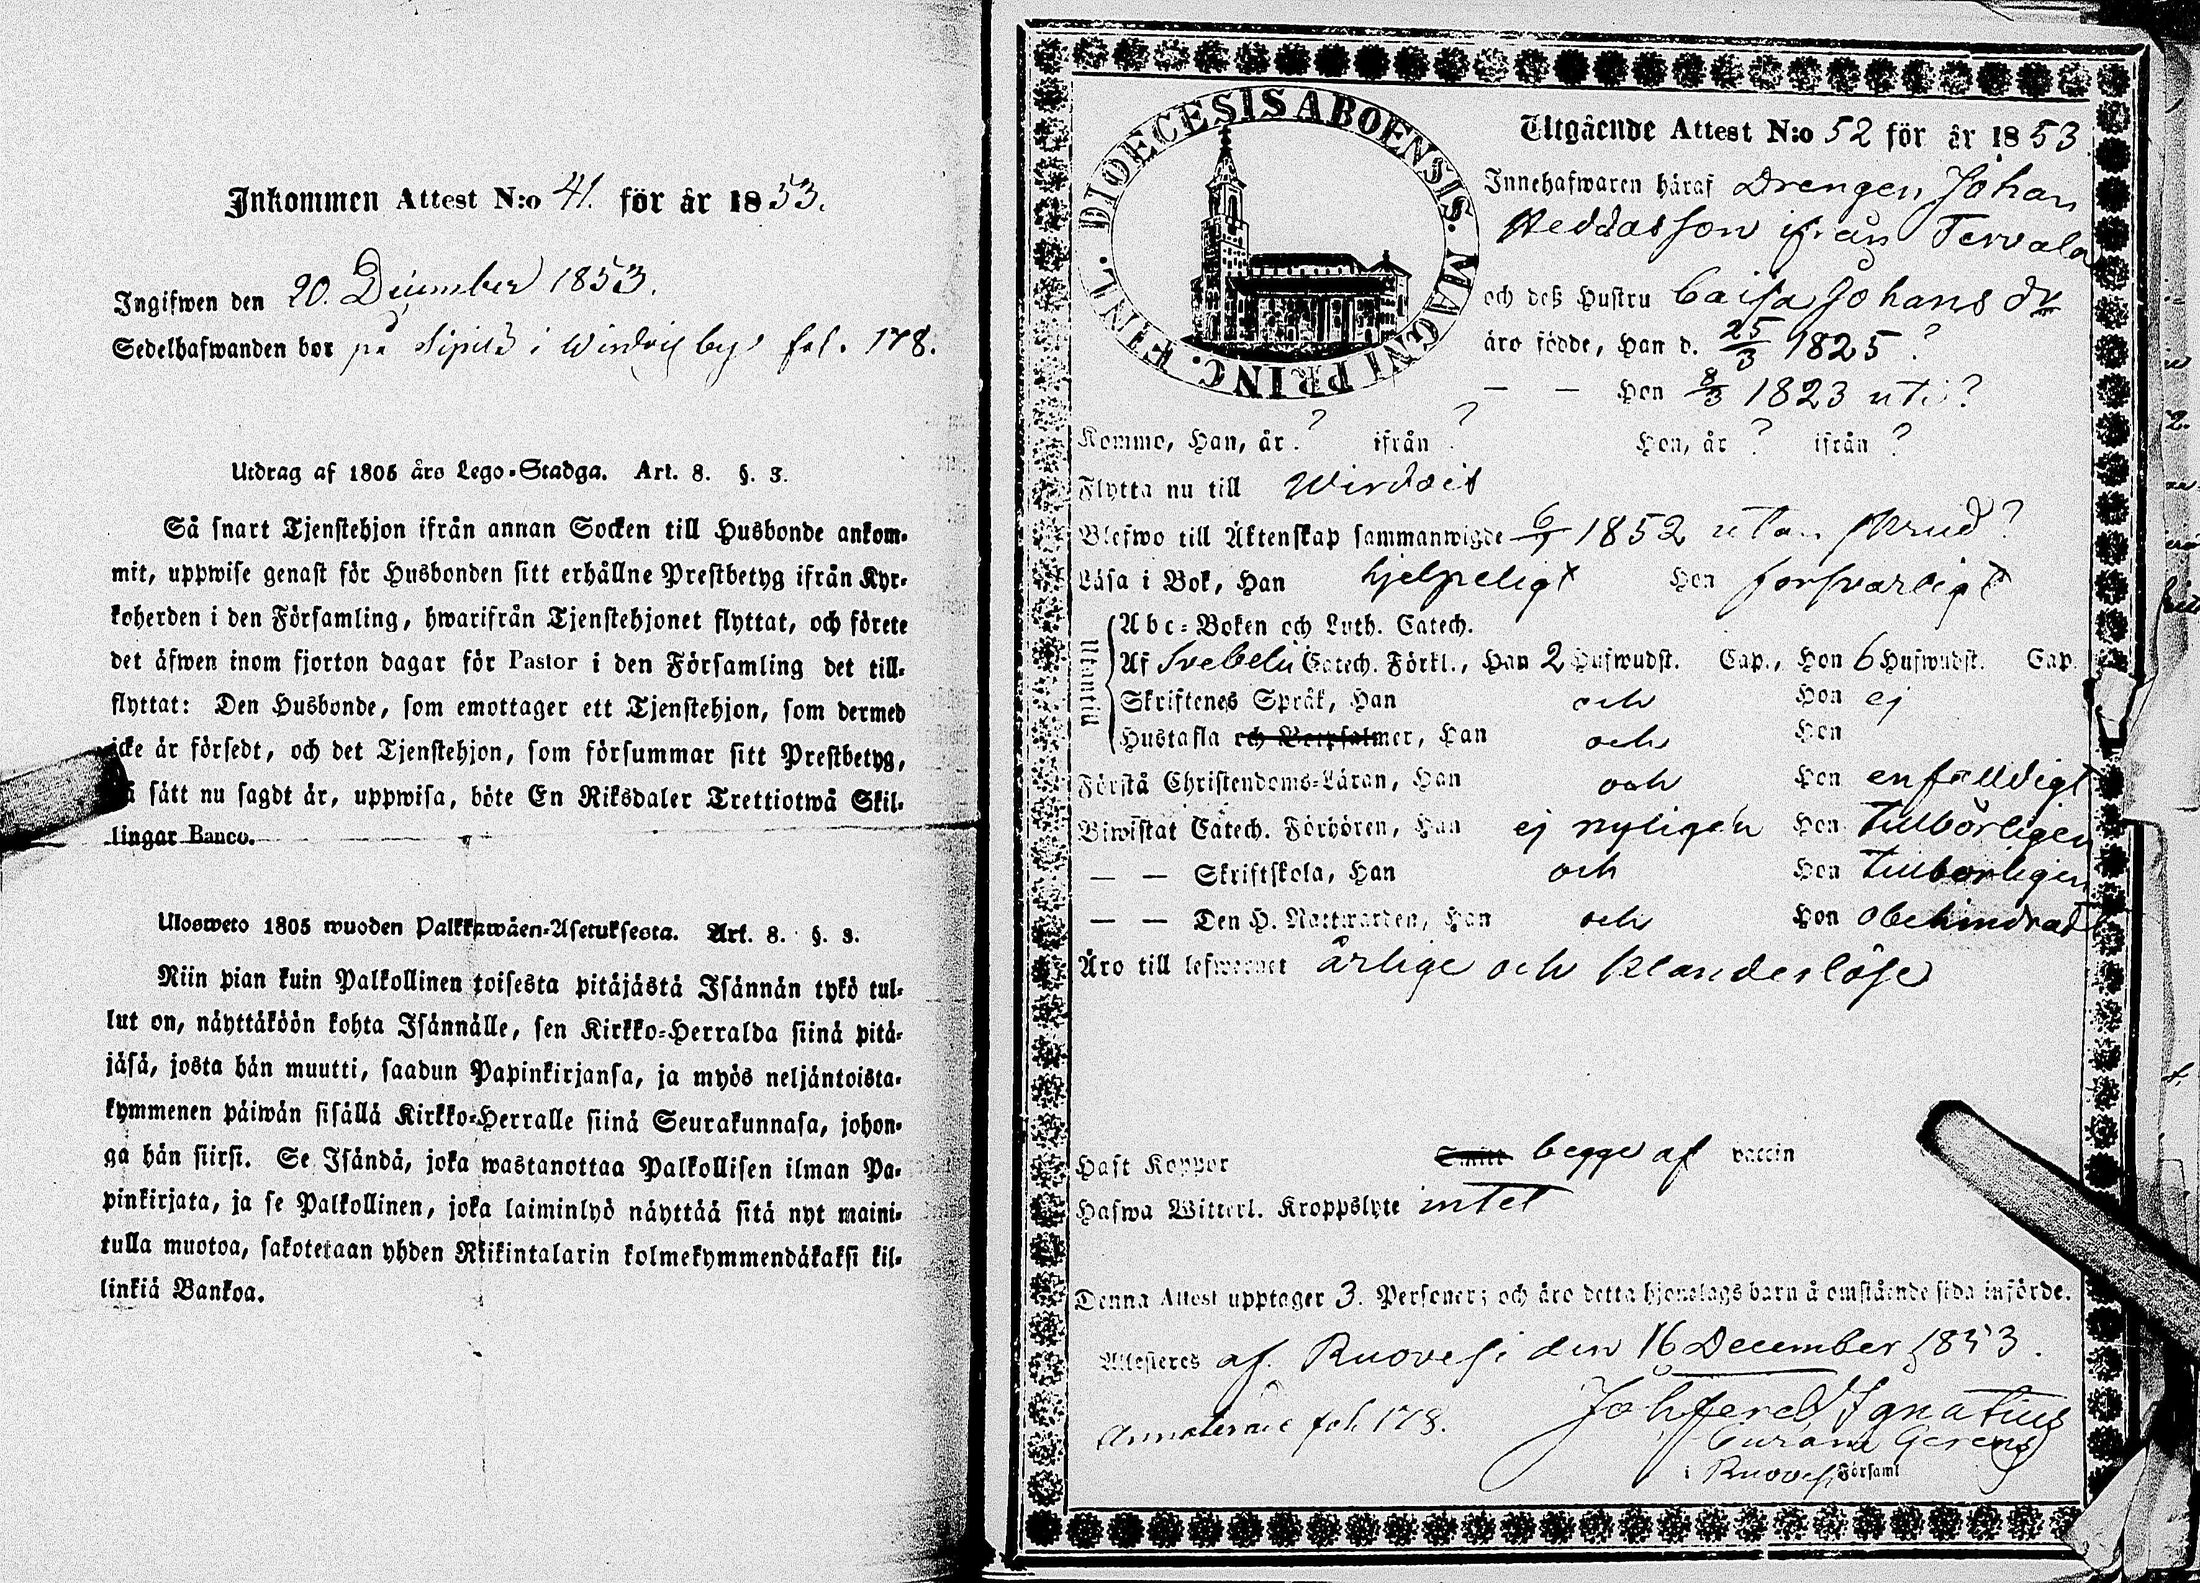 Inkommen Attest N:o 41. för år 1853.
Ingifwen den 20. December 1853.
Sedelhafwanden bor på Sipilä i Wirdois by, fol. 178.
Utdrag af 1805 åre Lego-Stadga. Art. 8. §. 3.
Så snart Tjenstehjon ifrån annan Socken till Husbonde ankom-
mit, uppwise genast för Husbonden sitt erhållne Prestbetyg ifrån Kyr-
koherden i den Församling, hwarifrån Tjenstehjonet flyttat, och förete
det äfwen inom fjorton dagar för Pastor i den Församling det till-
flyttat: Den Husbonde, som emottager ett Tjenstehjon, som dermed
icke är försedt, och det Tjenstehjon, som försummar sitt Prestbetyg,
på sätt nu sagdt är, uppwisa, böte En Riksdaler Trettiotwå Skil-
lingar Banco.
Ulosweto 1805 wuoden Palkkawäen-Asetuksesta. Art. 8. §. 3.
Niin pian kuin Palkollinen toisesta pitäjästä Isännän tykö tul-
lut on, näyttäköön kohta Isännälle, sen Kirkko-Herralda siinä pitä-
jäsä, josta hän muutti, saadun Papinkirjansa, ja myös neljäntoista-
kymmenen päiwän sisällä Kirkko-Herralle siinä Seurakunnasa, johon-
ga hän siirsi. Se Isändä, joka wastanottaa Palkollisen ilman Pa-
pinkirjata, ja se Palkollinen, joka laiminlyö näyttää sitä nyt maini-
tulla muotoa, sakotetaan yhden Riikintalarin kolmekymmendäkaksi kil-
linkiä Bankoa.
DIOECESIS ABOENSIS. MAGNI PRINC. FINL.
Utgående Attest N:o 52 för år 1853
Innehafwaren häraf Drengen Johan
Heddasson ifrån Tervala
och deß Hustru Caisa Johans dr
äro födde, Han d. 25/3 1825 ?
— — Hon 8/3 1823 uti ?
Komme, Han, år ? ifrån ? Hon, år ? ifrån ?
Flytta nu till Wirdois
Blefwo till Äktenskap sammanwigde 6/1 1852 utan skrud ?
Läsa i Bok, Han hjelpeligt Hon forsvarligt
Utantill
Abc-Boken och Luth. Catech.
Af Svebelii Catech. Förkl., Han 2 Hufwudst. Cap., Hon 6 Hufwudst. Cap.
Skriftenes Språk, Han och Hon ej
Hustafla och Botpsalmer, Han och Hon
Förstå Christendoms-Läran, Han och Hon enfalldigt
Biwistat Catech. Förhören, Han ej nyligen Hon tillbörligen
— — Skriftskola, Han och Hon tillborligen
— — Den H. Nattwarden, Han och Hon obehindrad
Äro till lefwernet ärlige och klanderlöse
Haft Koppor begge af vaccin
Hafwa Witterl. Kroppslyte intet
Denna Attest upptager 3. Personer; och äro detta hjonelags barn å omstående sida införde.
Attesteres af Ruovesi den 16 December 1853.
Annoterad fol. 178.
Joh Ferd Ignatius
Curam Gerens
i Ruovesi Församl